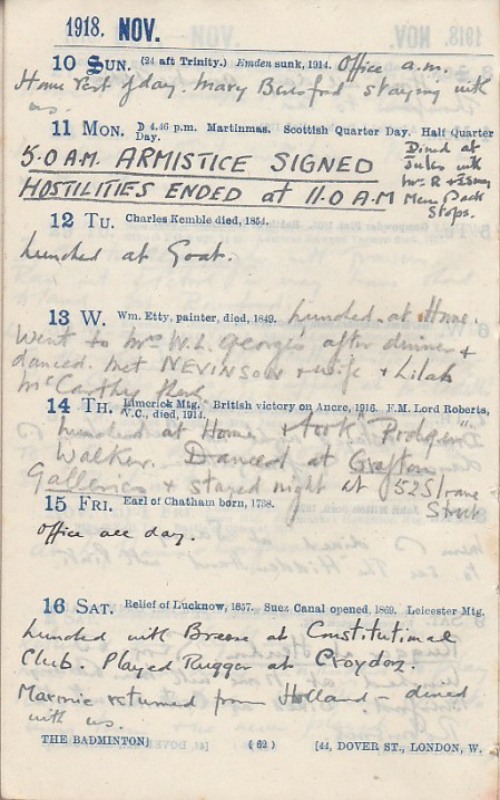 1918. NOV.
10 SUN. (24 aft Trinity.) Emden sunk, 1914. Office a.m.
Home rest of day. Mary Beresford staying with
us.
11 MON. D 4.46 p.m. Martinmas. Scottish Quarter Day. Half Quarter
Day.
Dined at
5.0 A.M. ARMISTICE SIGNED
Jules with
Mrs R +
HOSTILITIES ENDED at 11.0 A.M
Stops.
12 TU. Charles Kemble died, 1854.
Lunched at Goat.
13 W. Wm. Etty, painter, died, 1849. Lunched at Home.
Went to Mrs W. L. George's after dinner +
danced. Met NEVINSON + wife + Lilah
McCarthy there.
14 TH. Limerick Mtg. British victory on Ancre, 1916. F.M. Lord Roberts,
V.C., died, 1914.
Lunched at Home + took
Walker. Danced at Grafton
Galleries + stayed night at 52 Sloane
Street
15 FRI. Earl of Chatham born, 1708.
Office all day.
16 SAT. Relief of Lucknow, 1857. Suez Canal opened, 1869. Leicester Mtg.
Lunched with Breene at Constitutional
Club. Played Rugger at Croydon.
returned from Holland - dined
with us.
THE BADMINTON] (62) [44, DOVER ST., LONDON, W.